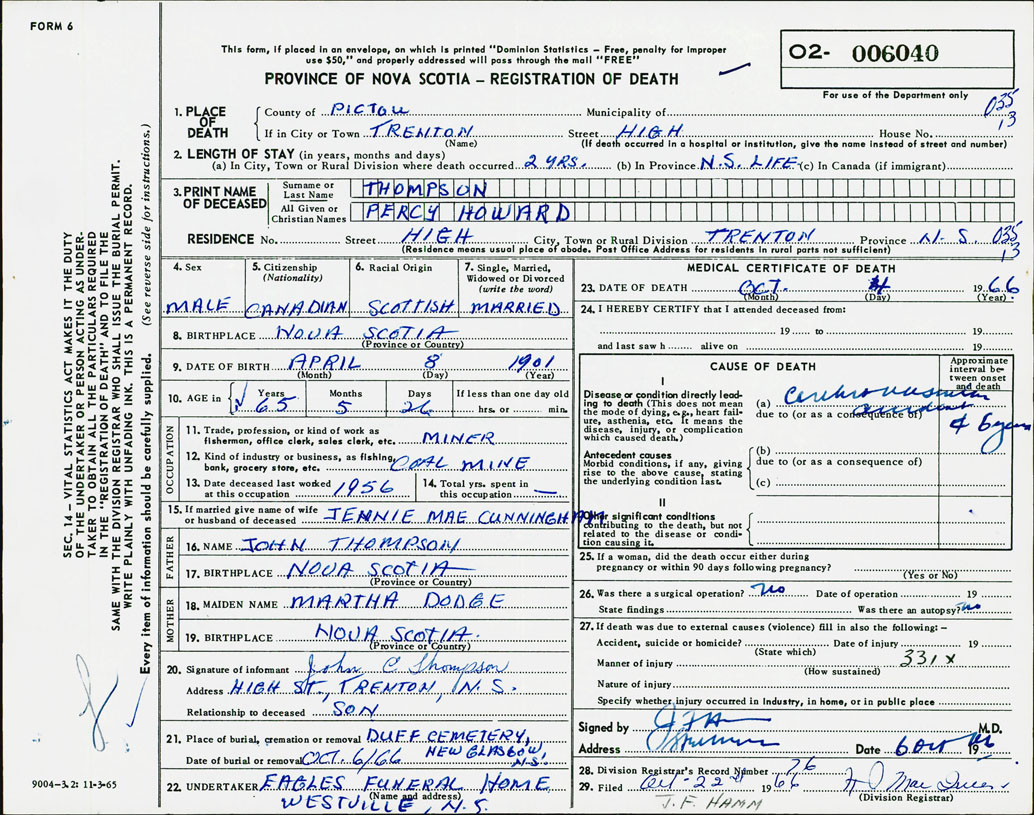 FORM 6
This form, if placed in an envelope, on which is printed "Dominion Statistics – Free, penalty for improper
use $50," and properly addressed will pass through the mail "FREE"
PROVINCE OF NOVA SCOTIA – REGISTRATION OF DEATH
O2- 006040
For use of the Department only
035
13
1. PLACE OF DEATH
County of PICTOU Municipality of
If in City or Town TRENTON Street HIGH House No.
(Name) (If death occurred in a hospital or institution, give the name instead of street and number)
2. LENGTH OF STAY (in years, months and days)
(a) In City, Town or Rural Division where death occurred 2 YRS. (b) In Province N.S. LIFE (c) In Canada (if immigrant)
3. PRINT NAME OF DECEASED
Surname or Last Name THOMPSON
All Given or Christian Names PERCY HOWARD
RESIDENCE No. Street HIGH City, Town or Rural Division TRENTON Province N.S. 035
13
(Residence means usual place of abode. Post Office Address for residents in rural parts not sufficient)
4. Sex 5. Citizenship (Nationality) 6. Racial Origin 7. Single, Married, Widowed or Divorced (write the word)
MALE CANADIAN SCOTTISH MARRIED
8. BIRTHPLACE NOVA SCOTIA
(Province or Country)
9. DATE OF BIRTH APRIL 8 1901
(Month) (Day) (Year)
10. AGE in Years Months Days If less than one day old
65 5 26 hrs. or min.
OCCUPATION
11. Trade, profession, or kind of work as
fisherman, office clerk, sales clerk, etc. MINER
12. Kind of industry or business, as fishing,
bank, grocery store, etc. COAL MINE
13. Date deceased last worked
at this occupation 1956
14. Total yrs. spent in
this occupation —
15. If married give name of wife
or husband of deceased JENNIE MAE CUNNINGHAM
FATHER
16. NAME JOHN THOMPSON
17. BIRTHPLACE NOVA SCOTIA
(Province or Country)
MOTHER
18. MAIDEN NAME MARTHA DODGE
19. BIRTHPLACE NOVA SCOTIA.
(Province or Country)
20. Signature of informant John C Thompson
Address HIGH ST., TRENTON, N.S.
Relationship to deceased SON
21. Place of burial, cremation or removal DUFF CEMETERY,
NEW GLASGOW, N.S.
Date of burial or removal OCT. 6/66
22. UNDERTAKER EAGLES FUNERAL HOME
(Name and address)
WESTVILLE, N.S.
MEDICAL CERTIFICATE OF DEATH
23. DATE OF DEATH OCT. 4 1966
(Month) (Day) (Year)
24. I HEREBY CERTIFY that I attended deceased from:
19 to 19
and last saw h alive on 19
CAUSE OF DEATH
Approximate interval between onset and death
I
Disease or condition directly leading to death (This does not mean
the mode of dying, e.g., heart failure, asthenia, etc. It means the
disease, injury, or complication
which caused death.)
(a) Cerebrovascular
due to (or as a consequence of) accident
6 years
Antecedent causes
Morbid conditions, if any, giving
rise to the above cause, stating
the underlying condition last.
(b)
due to (or as a consequence of)
(c)
II
Other significant conditions
contributing to the death, but not
related to the disease or condition causing it.
25. If a woman, did the death occur either during
pregnancy or within 90 days following pregnancy?
(Yes or No)
26. Was there a surgical operation? No Date of operation 19
State findings Was there an autopsy? No
27. If death was due to external causes (violence) fill in also the following:–
Accident, suicide or homicide? Date of injury 19
(State which)
Manner of injury 331X
(How sustained)
Nature of injury
Specify whether injury occurred in industry, in home, or in public place
Signed by M.D.
Address Date 6 Oct 1966
28. Division Registrar's Record Number 76
29. Filed Oct 22nd 1966
(Division Registrar)
J.F. HAMM
SEC. 14 – VITAL STATISTICS ACT MAKES IT THE DUTY
OF THE UNDERTAKER OR PERSON ACTING AS UNDER-
TAKER TO OBTAIN ALL THE PARTICULARS REQUIRED
IN THE "REGISTRATION OF DEATH" AND TO FILE THE
SAME WITH THE DIVISION REGISTRAR WHO SHALL ISSUE THE BURIAL PERMIT.
WRITE PLAINLY WITH UNFADING INK. THIS IS A PERMANENT RECORD.
Every item of information should be carefully supplied. (See reverse side for instructions.)
9004-3.2: 11-3-65